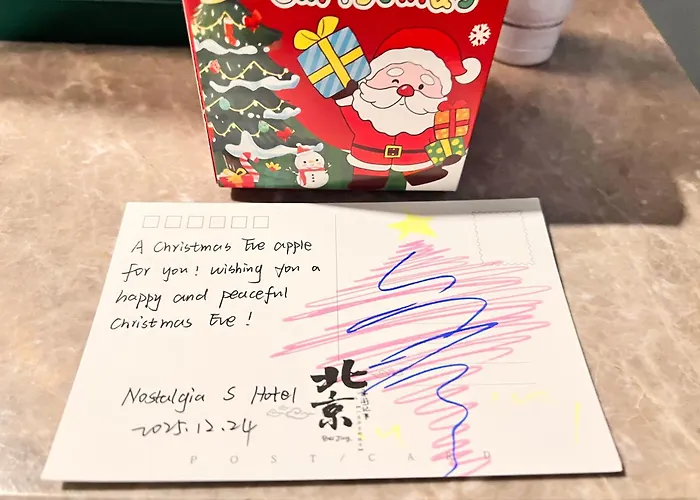 Christmas
A Christmas Eve apple
for you! wishing you a
happy and peaceful
Christmas Eve!
Nostalgia S Hotel
2025.12.24
北京
Bei Jing
POST/CARD